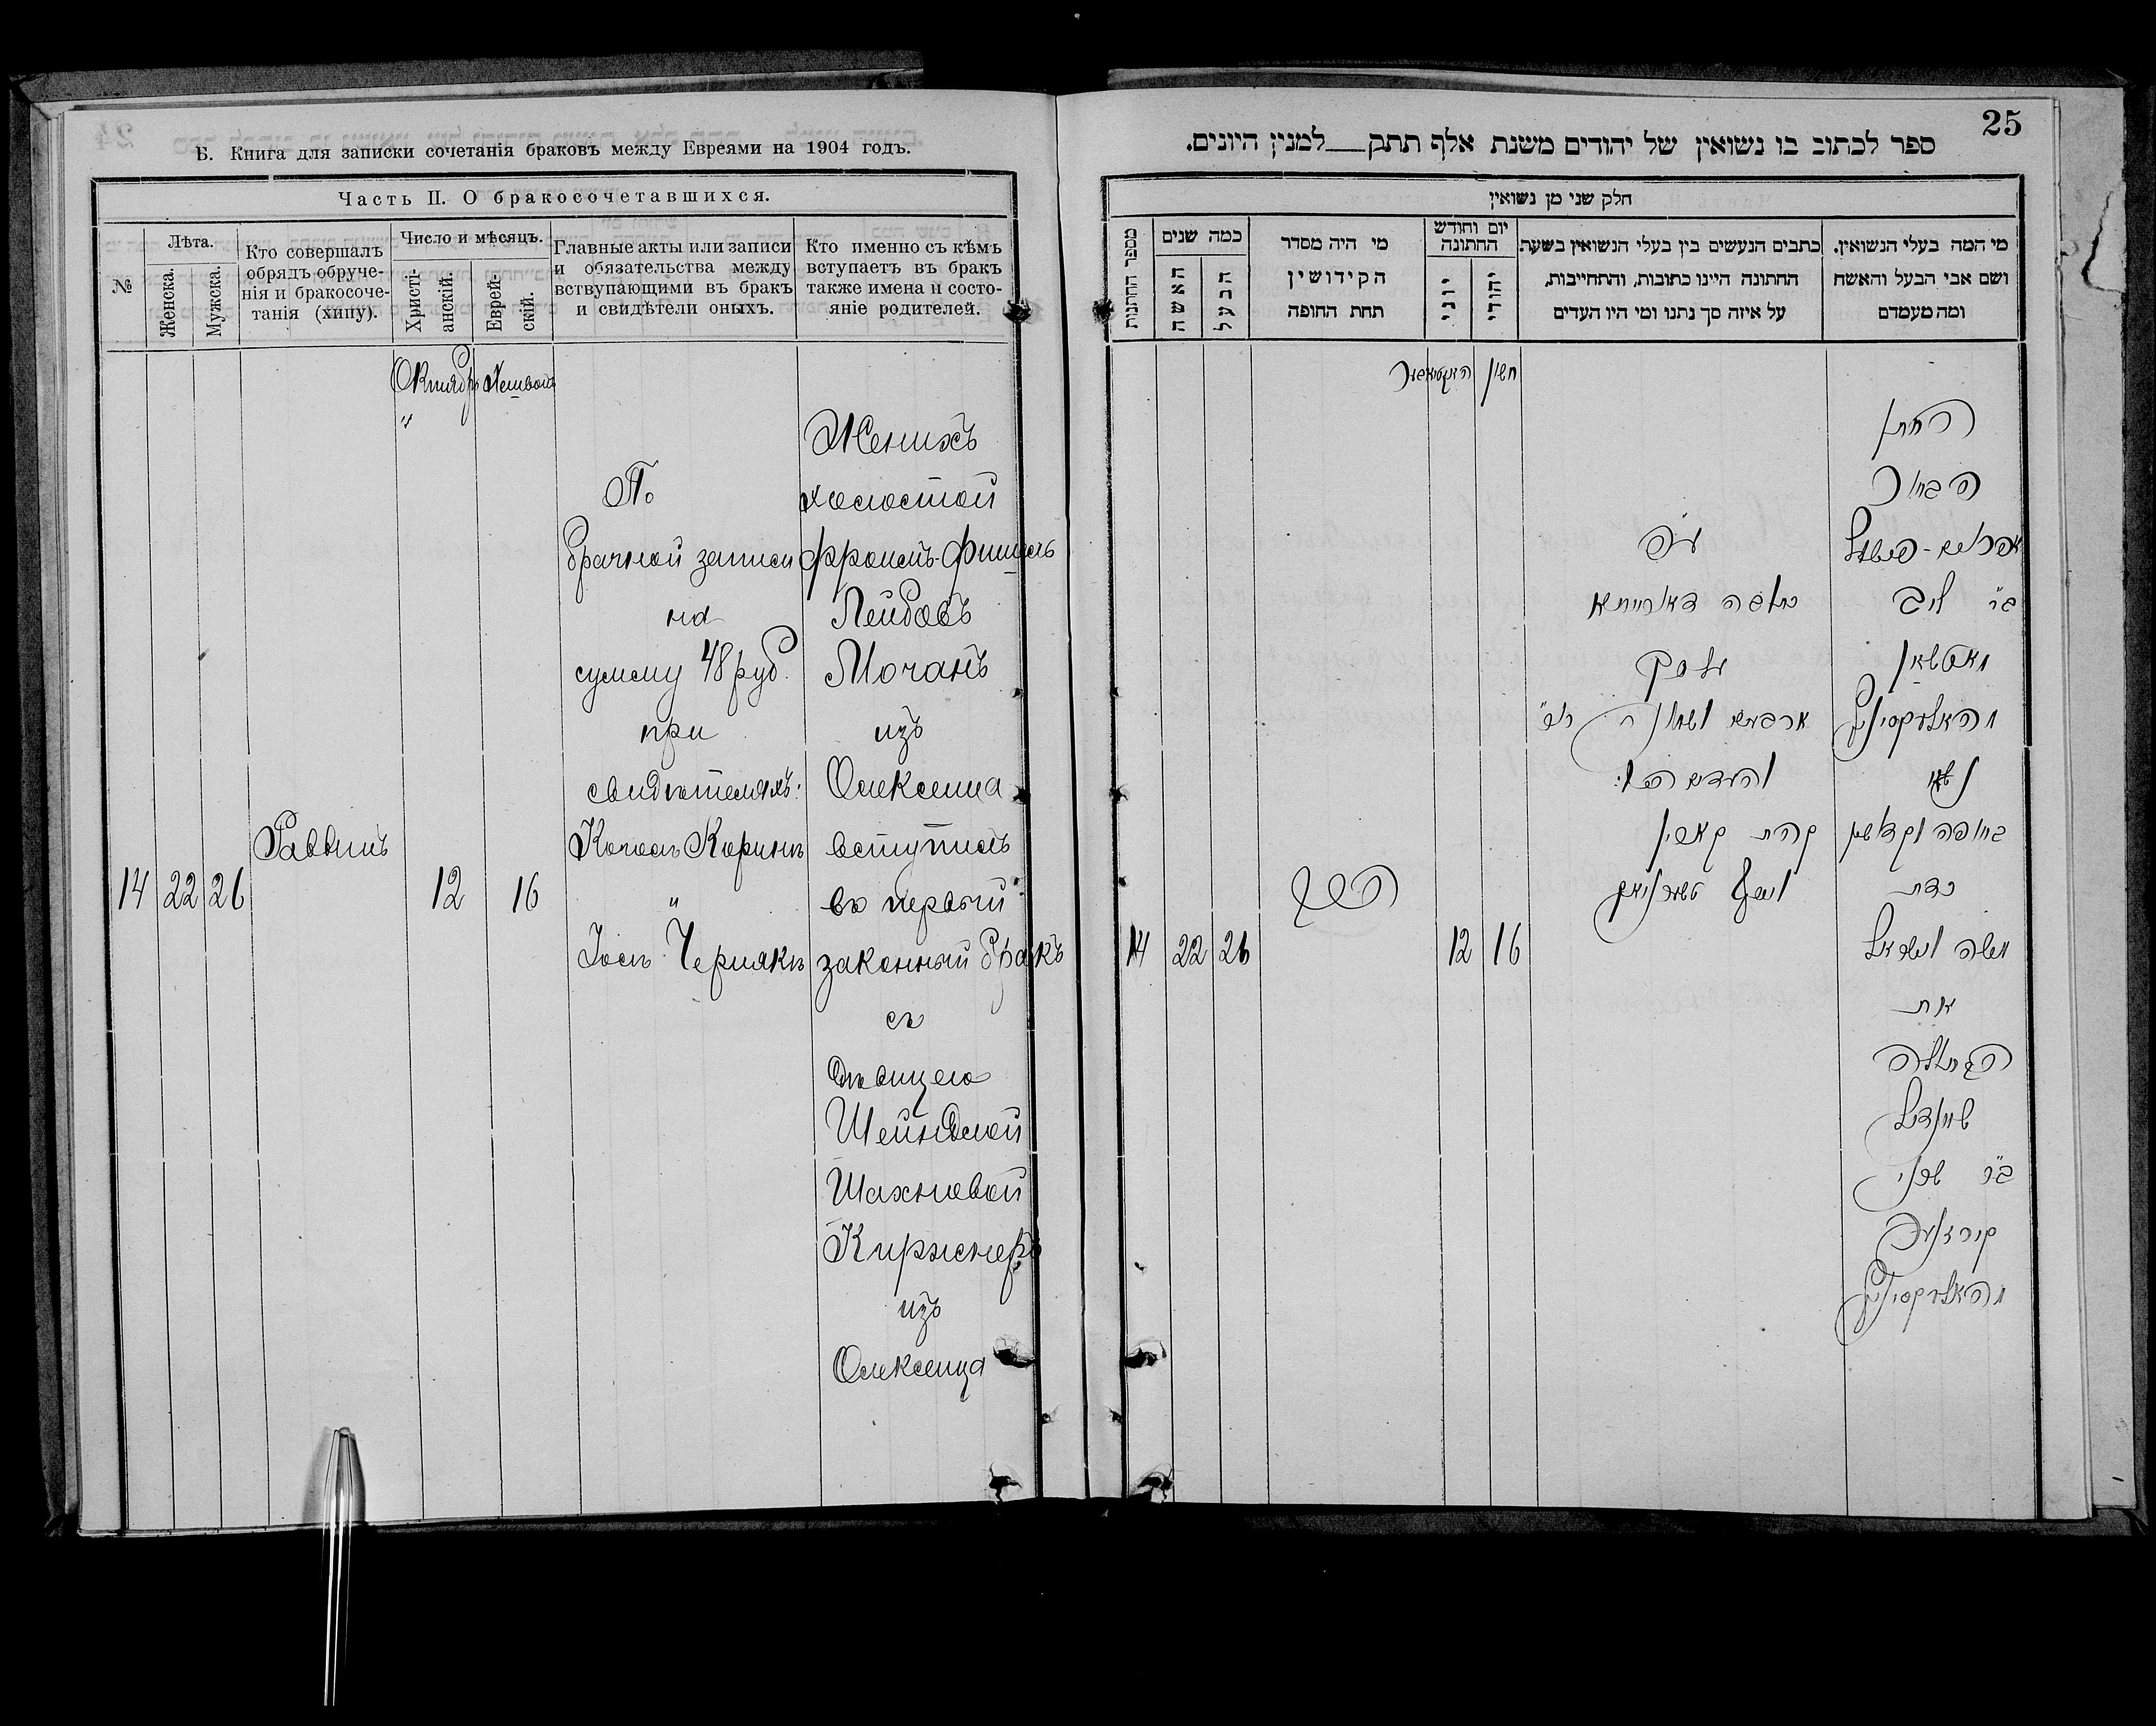 Б. Книга для записки сочетанія браковъ между Евреями на 1904 годъ.
Часть II. О бракосочетавшихся.
№
Лѣта.
Женска.
Мужска.
Кто совершалъ
обрядъ обруче-
нія и бракосоче-
танія (хипу).
Число и мѣсяцъ.
Христі-
анскій.
Еврей-
скій.
Главные акты или записи
и обязательства между
вствупающими въ бракъ
и свидѣтели оныхъ.
Кто именно съ кѣмъ
вступаетъ въ бракъ
также имена и состо-
яніе родителей.
Октябрь
Хешвонъ
14
22
26
Раввинъ
12
16
По
брачной записи
на
сумму 48 руб.
при
свидѣтеляхъ:
"
Іось Чернякъ
Женихъ
холостой
Фроимъ-Фишель
Лейбовъ
Мочанъ
изъ
Олексенца
вступилъ
въ первый
законный бракъ
съ
дѣвицею
Шейндлей
Шахновой
Киржнеръ
изъ
Олексенца
25
ספר לכתוב בו נשואין של יהודים משנת אלף תתק__למנין היונים.
חלק שני מן נשואין
מספר החתונות
כמה שנים
האשה
הבעל
מי היה מסדר
הקידושין
תחת החופה
יום וחודש
החתונה
יוני
יהודי
כתבים הנעשים בין בעלי הנשואין בשעת
החתונה היינו כתובות, והתחייבות,
על איזה סך נתנו ומי היו העדים
מי המה בעלי הנשואין,
ושם אבי הבעל והאשה
ומה מעמדם
חשון
14
22
26
12
16
ע"פ
כתובה דאורייתא
על סך
ארבעים ושמונה רו"כ
והעדים המה:
החתן
הבחור
אפרים-פישל
ב"ר ליב
בחופה וקדושין
כדת
משה וישראל
את
הבתולה
שיינדיל